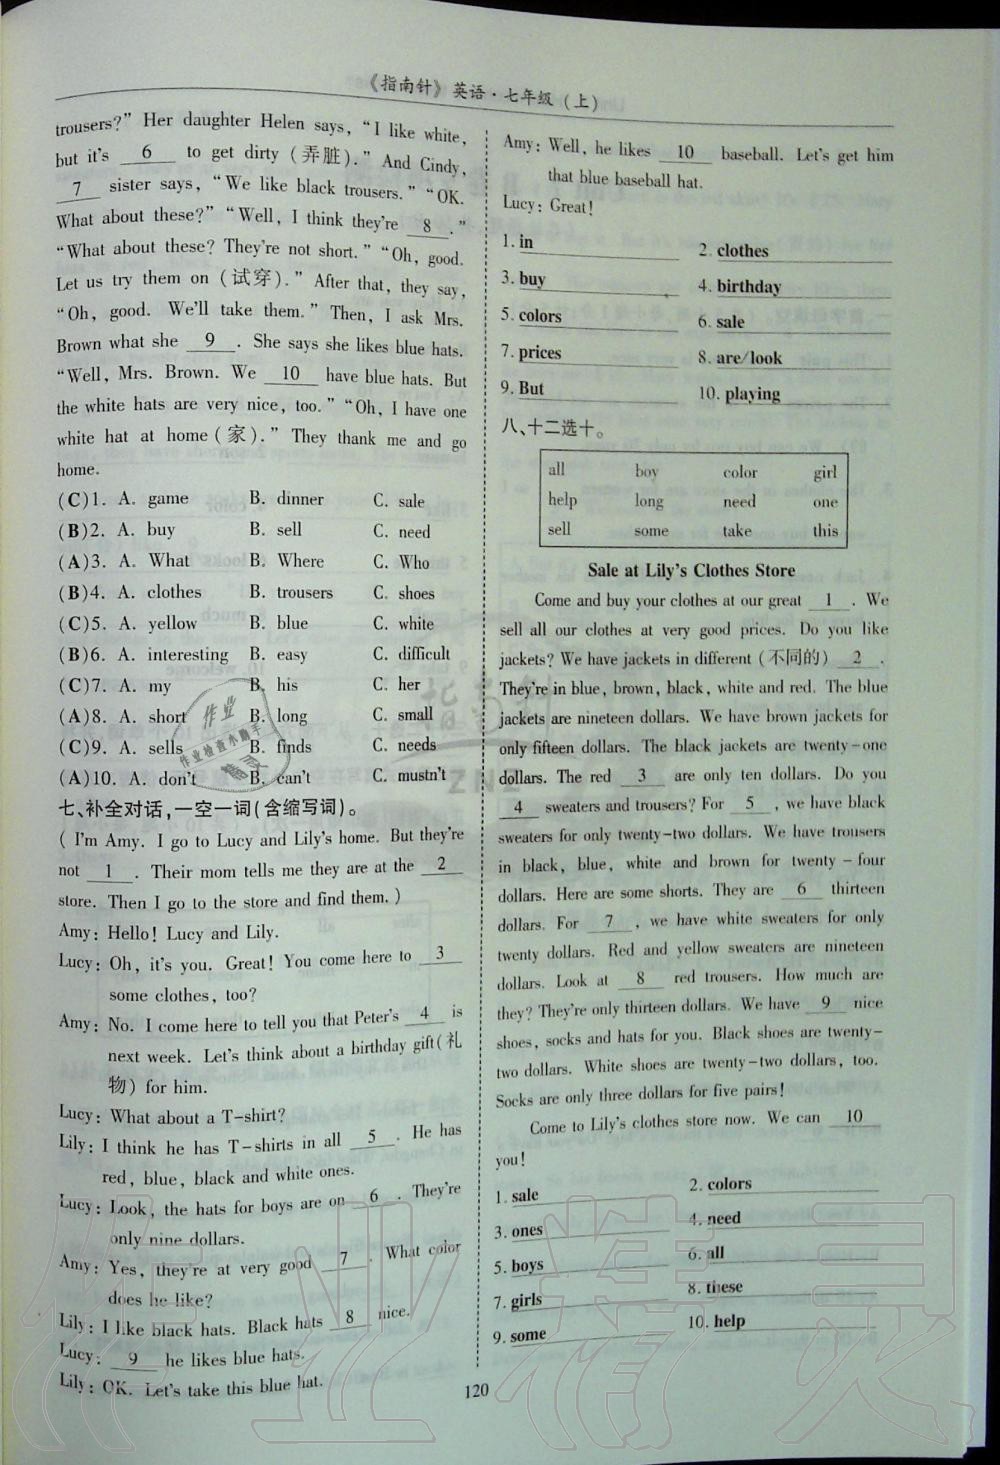 《指南针》英语·七年级(上)
trousers?" Her daughter Helen says, "I like white,
but it's 6 to get dirty (弄脏)." And Cindy,
7 sister says, "We like black trousers." "OK.
What about these?" "Well, I think they're 8 ."
"What about these? They're not short." "Oh, good.
Let us try them on (试穿)." After that, they say,
"Oh, good. We'll take them." Then, I ask Mrs.
Brown what she 9 . She says she likes blue hats.
"Well, Mrs. Brown. We 10 have blue hats. But
the white hats are very nice, too." "Oh, I have one
white hat at home (家)." They thank me and go
home.
(C)1. A. game B. dinner C. sale
(B)2. A. buy B. sell C. need
(A)3. A. What B. Where C. Who
(B)4. A. clothes B. trousers C. shoes
(C)5. A. yellow B. blue C. white
(B)6. A. interesting B. easy C. difficult
(C)7. A. my B. his C. her
(A)8. A. short B. long C. small
(C)9. A. sells B. finds C. needs
(A)10. A. don't B. can't C. mustn't
七、补全对话,一空一词(含缩写词)。
( I'm Amy. I go to Lucy and Lily's home. But they're
not 1 . Their mom tells me they are at the 2
store. Then I go to the store and find them. )
Amy: Hello! Lucy and Lily.
Lucy: Oh, it's you. Great! You come here to 3
some clothes, too?
Amy: No. I come here to tell you that Peter's 4 is
next week. Let's think about a birthday gift(礼
物) for him.
Lucy: What about a T-shirt?
Lily: I think he has T-shirts in all 5 . He has
red, blue, black and white ones.
Lucy: Look, the hats for boys are on 6 . They're
only nine dollars.
Amy: Yes, they're at very good 7 . What color
does he like?
Lily: I like black hats. Black hats 8 nice.
Lucy: 9 he likes blue hats.
Lily: OK. Let's take this blue hat.
Amy: Well, he likes 10 baseball. Let's get him
that blue baseball hat.
Lucy: Great!
1. in 2. clothes
3. buy 4. birthday
5. colors 6. sale
7. prices 8. are/look
9. But 10. playing
八、十二选十。
all boy color girl
help long need one
sell some take this
Sale at Lily's Clothes Store
Come and buy your clothes at our great 1 . We
sell all our clothes at very good prices. Do you like
jackets? We have jackets in different (不同的) 2 .
They're in blue, brown, black, white and red. The blue
jackets are nineteen dollars. We have brown jackets for
only fifteen dollars. The black jackets are twenty-one
dollars. The red 3 are only ten dollars. Do you
4 sweaters and trousers? For 5 , we have black
sweaters for only twenty-two dollars. We have trousers
in black, blue, white and brown for twenty-four
dollars. Here are some shorts. They are 6 thirteen
dollars. For 7 , we have white sweaters for only
twenty dollars. Red and yellow sweaters are nineteen
dollars. Look at 8 red trousers. How much are
they? They're only thirteen dollars. We have 9 nice
shoes, socks and hats for you. Black shoes are twenty-
two dollars. White shoes are twenty-two dollars, too.
Socks are only three dollars for five pairs!
Come to Lily's clothes store now. We can 10
you!
1. sale 2. colors
3. ones 4. need
5. boys 6. all
7. girls 8. these
9. some 10. help
120
作业
作业检查小助手
精灵
ZNZ
作业精灵